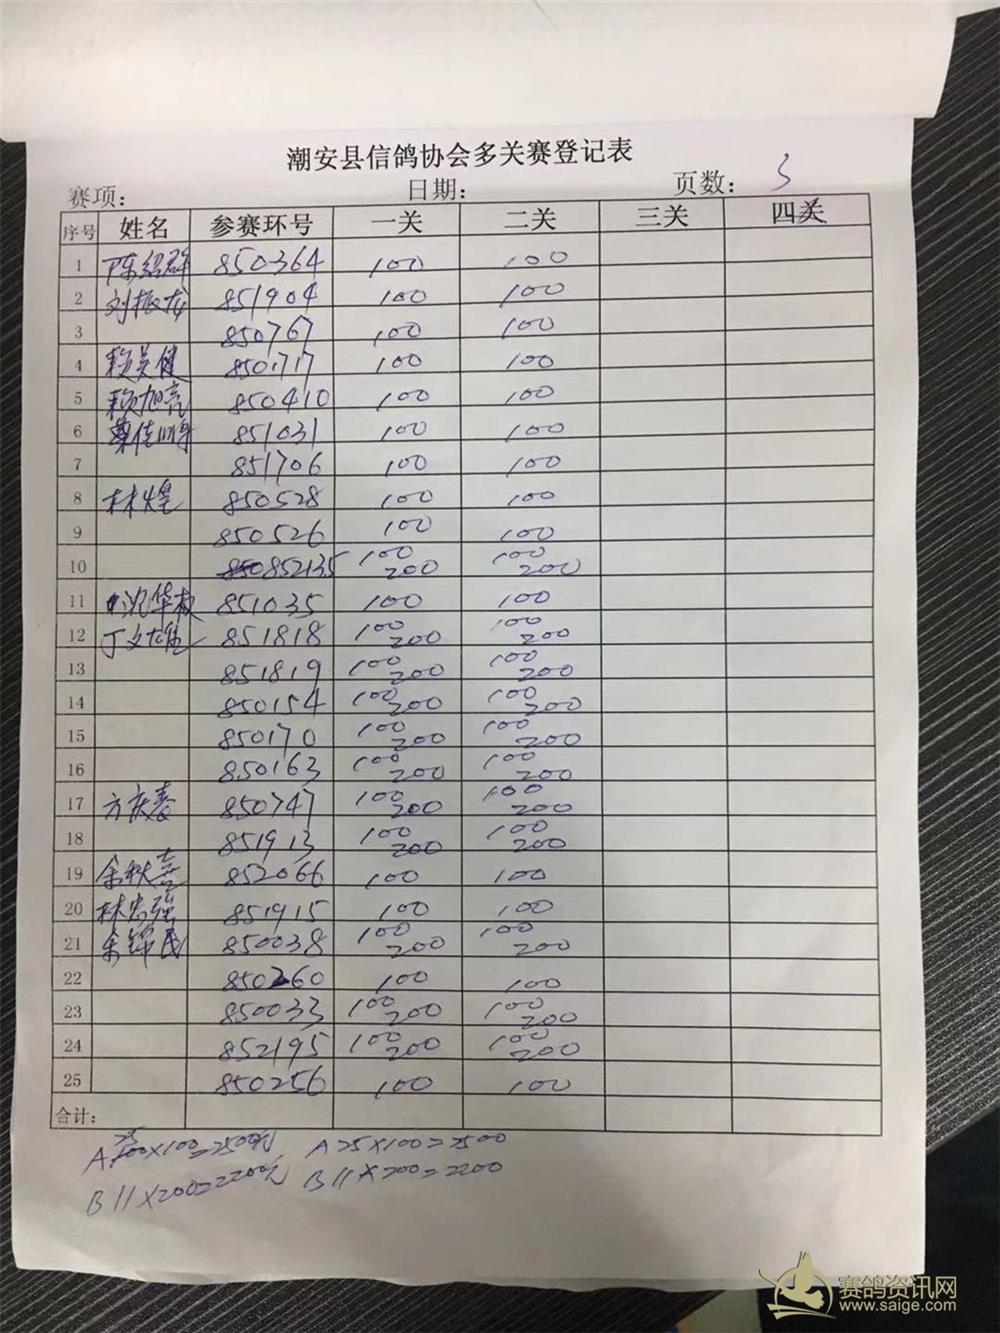 潮安县信鸽协会多关赛登记表
赛项: 日期: 页数: 3
序号 姓名 参赛环号 一关 二关 三关 四关
1 陈绍群 850364 100 100
2 刘振龙 851904 100 100
3 850767 100 100
4 赖英健 850717 100 100
5 赖旭亮 850410 100 100
6 蔡佳 851031 100 100
7 851706 100 100
8 林煌 850528 100 100
9 850526 100 100
10 852135 100 200 100 200
11 沈华 851035 100 100
12 丁文雄 851818 100 200 100 200
13 851819 100 200 100 200
14 850154 100 200 100 200
15 850170 100 200 100 200
16 850163 100 200 100 200
17 方庆春 850747 100 200 100 200
18 851913 100 200 100 200
19 余秋喜 852066 100 100
20 林忠强 851915 100 100
21 余锦民 850038 100 200 100 200
22 850260 100 100
23 850033 100 200 100 200
24 852195 100 200 100 200
25 850256 100 100
合计:
A 25×100=2500元 A25×100=2500
B11×200=2200元 B11×200=2200
赛鸽资讯网
www.saige.com